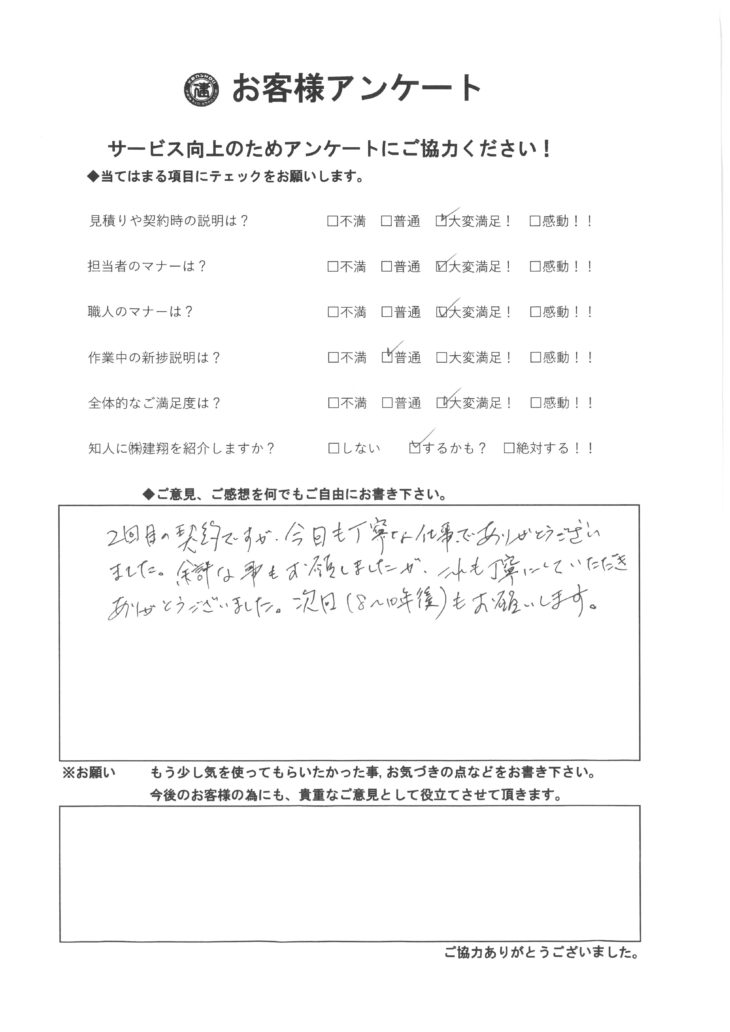 お客様アンケート
サービス向上のためアンケートにご協力ください！
◆当てはまる項目にテェックをお願いします。
見積りや契約時の説明は？ □不満 □普通 ☑大変満足！ □感動！！
担当者のマナーは？ □不満 □普通 ☑大変満足！ □感動！！
職人のマナーは？ □不満 □普通 ☑大変満足！ □感動！！
作業中の新捗説明は？ □不満 ☑普通 □大変満足！ □感動！！
全体的なご満足度は？ □不満 □普通 ☑大変満足！ □感動！！
知人に㈱建翔を紹介しますか？ □しない ☑するかも？ □絶対する！！
◆ご意見、ご感想を何でもご自由にお書き下さい。
2回目の契約ですが、今回も丁寧な仕事でありがとうござい
ました。余計な事もお願しましたが、これも丁寧にしていただき
ありがとうございました。次回（8〜10年後）もお願いします。
※お願い もう少し気を使ってもらいたかった事,お気づきの点などをお書き下さい。
今後のお客様の為にも、貴重なご意見として役立てさせて頂きます。
ご協力ありがとうございました。